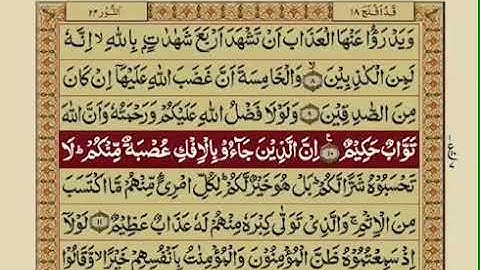 قد افلح ١٨
النور ٢٤
وَيَدْرَؤُا عَنْهَا الْعَذَابَ اَنْ تَشْهَدَ اَرْبَعَ شَهٰدٰتٍۭ بِاللّٰهِ ۙ اِنَّهٗ
لَمِنَ الْكٰذِبِيْنَ ۙ﴿۸﴾ وَالْخَامِسَةَ اَنَّ غَضَبَ اللّٰهِ عَلَيْهَاۤ اِنْ كَانَ
مِنَ الصّٰدِقِيْنَ ﴿۹﴾ وَلَوْلَا فَضْلُ اللّٰهِ عَلَيْكُمْ وَرَحْمَتُهٗ وَاَنَّ اللّٰهَ
تَوَّابٌ حَكِيْمٌ ﴿۱۰﴾ اِنَّ الَّذِيْنَ جَآءُوْ بِالْاِفْكِ عُصْبَةٌ مِّنْكُمْ ؕ لَا
تَحْسَبُوْهُ شَرًّا لَّكُمْ ؕ بَلْ هُوَ خَيْرٌ لَّكُمْ ؕ لِكُلِّ امْرِیٴٍ مِّنْهُمْ مَّا اكْتَسَبَ
مِنَ الْاِثْمِ ۚ وَالَّذِيْ تَوَلّٰى كِبْرَهٗ مِنْهُمْ لَهٗ عَذَابٌ عَظِيْمٌ ﴿۱۱﴾ لَوْلَاۤ
اِذْ سَمِعْتُمُوْهُ ظَنَّ الْمُؤْمِنُوْنَ وَالْمُؤْمِنٰتُ بِاَنْفُسِهِمْ خَيْرًا ۙ وَّقَالُوْا